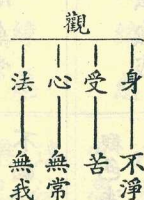 觀
身 不淨
受 苦
心 無常
法 無我